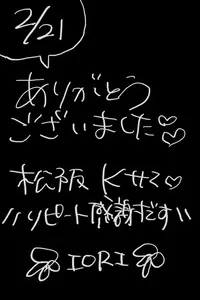 2/21
ありがとう
ございました♡♡
松阪 Kせてさ♡
\\リピート感謝です\\
IORI